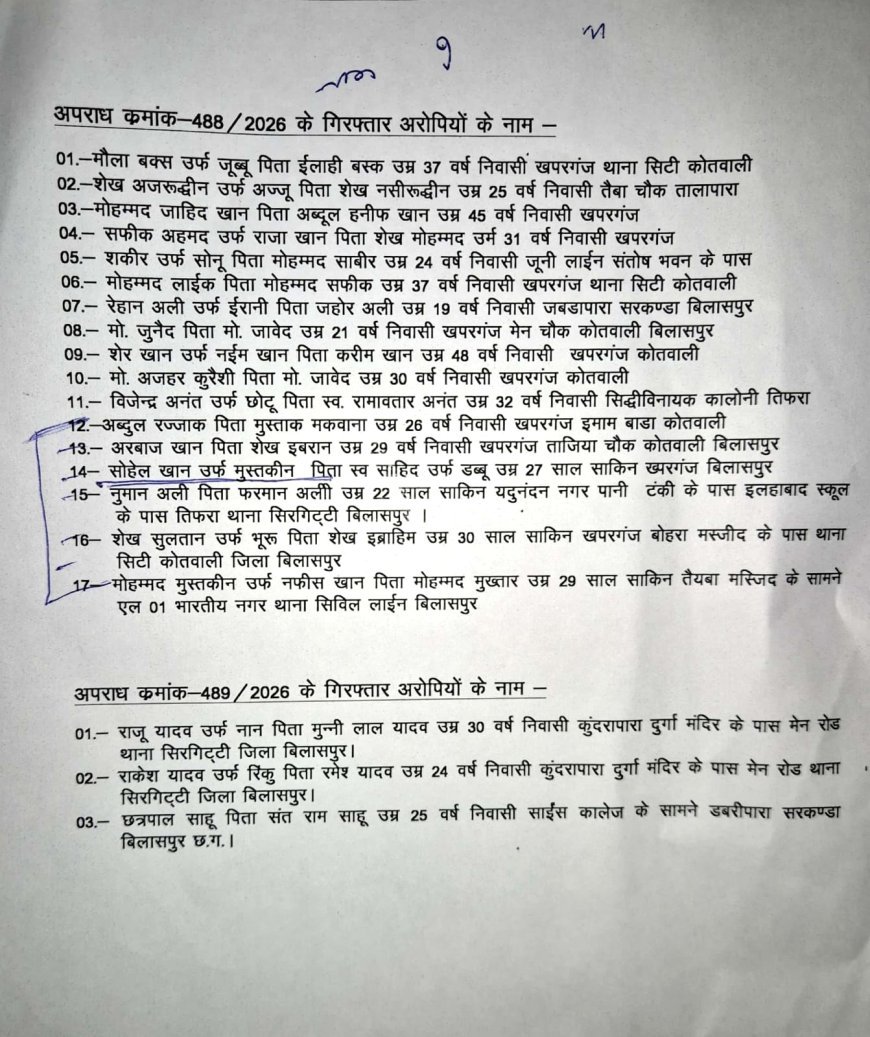 अपराध क्रमांक–488/2026 के गिरफ्तार अरोपियों के नाम –
01.–मौला बक्स उर्फ जूब्बू पिता ईलाही बस्क उम्र 37 वर्ष निवासी खपरगंज थाना सिटी कोतवाली
02.–शेख अजरूद्धीन उर्फ अज्जू पिता शेख नसीरूद्धीन उम्र 25 वर्ष निवासी तैबा चौक तालापारा
03.–मोहम्मद जाहिद खान पिता अब्दूल हनीफ खान उम्र 45 वर्ष निवासी खपरगंज
04.– सफीक अहमद उर्फ राजा खान पिता शेख मोहम्मद उर्म 31 वर्ष निवासी खपरगंज
05.– शकीर उर्फ सोनू पिता मोहम्मद साबीर उम्र 24 वर्ष निवासी जूनी लाईन संतोष भवन के पास
06.– मोहम्मद लाईक पिता मोहम्मद सफीक उम्र 37 वर्ष निवासी खपरगंज थाना सिटी कोतवाली
07.– रेहान अली उर्फ ईरानी पिता जहोर अली उम्र 19 वर्ष निवासी जबडापारा सरकण्डा बिलासपुर
08.– मो. जुनैद पिता मो. जावेद उम्र 21 वर्ष निवासी खपरगंज मेन चौक कोतवाली बिलासपुर
09.– शेर खान उर्फ नईम खान पिता करीम खान उम्र 48 वर्ष निवासी खपरगंज कोतवाली
10.– मो. अजहर कुरैशी पिता मो. जावेद उम्र 30 वर्ष निवासी खपरगंज कोतवाली
11.– विजेन्द्र अनंत उर्फ छोटू पिता स्व. रामावतार अनंत उम्र 32 वर्ष निवासी सिद्धीविनायक कालोनी तिफरा
12.–अब्दुल रज्जाक पिता मुस्ताक मकवाना उम्र 26 वर्ष निवासी खपरगंज इमाम बाडा कोतवाली
13.– अरबाज खान पिता शेख इबरान उम्र 29 वर्ष निवासी खपरगंज ताजिया चौक कोतवाली बिलासपुर
14– सोहेल खान उर्फ मुस्तकीन पिता स्व साहिद उर्फ डब्बू उम्र 27 साल साकिन ख्परगंज बिलासपुर
15– नुमान अली पिता फरमान अलीी उम्र 22 साल साकिन यदुनंदन नगर पानी टंकी के पास इलहाबाद स्कूल
के पास तिफरा थाना सिरगिट्टी बिलासपुर ।
16– शेख सुलतान उर्फ भूरू पिता शेख इब्राहिम उम्र 30 साल साकिन खपरगंज बोहरा मस्जीद के पास थाना
सिटी कोतवाली जिला बिलासपुर
17– मोहम्मद मुस्तकीन उर्फ नफीस खान पिता मोहम्मद मुख्तार उम्र 29 साल साकिन तैयबा मस्जिद के सामने
एल 01 भारतीय नगर थाना सिविल लाईन बिलासपुर
अपराध क्रमांक–489/2026 के गिरफ्तार अरोपियों के नाम –
01.– राजू यादव उर्फ नान पिता मुन्नी लाल यादव उम्र 30 वर्ष निवासी कुंदरापारा दुर्गा मंदिर के पास मेन रोड
थाना सिरगिट्टी जिला बिलासपुर।
02.– राकेश यादव उर्फ रिंकु पिता रमेश यादव उम्र 24 वर्ष निवासी कुंदरापारा दुर्गा मंदिर के पास मेन रोड थाना
सिरगिट्टी जिला बिलासपुर।
03.– छत्रपाल साहू पिता संत राम साहू उम्र 25 वर्ष निवासी साईंस कालेज के सामने डबरीपारा सरकण्डा
बिलासपुर छ.ग.।